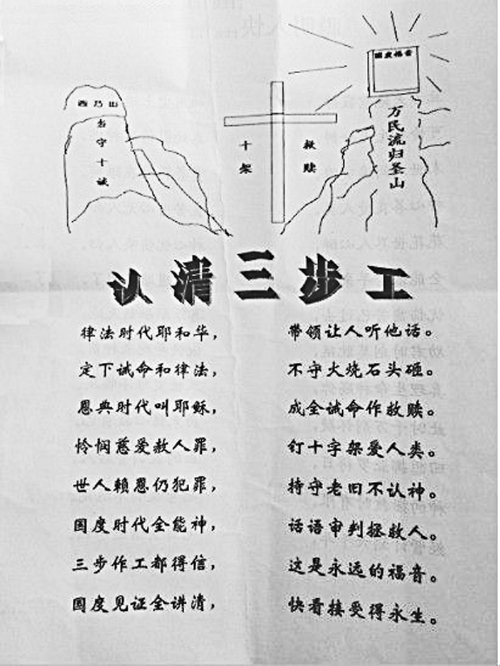 国度福音
西乃山
当守十诫
十架
救赎
万民流归圣山
认清三步工
律法时代耶和华， 带领让人听他话。
定下诫命和律法， 不守火烧石头砸。
恩典时代叫耶稣， 成全诫命作救赎。
怜悯慈爱赦人罪， 钉十字架爱人类。
世人赖恩仍犯罪， 持守老旧不认神。
国度时代全能神， 话语审判拯救人。
三步作工都得信， 这是永远的福音。
国度见证全讲清， 快看接受得永生。